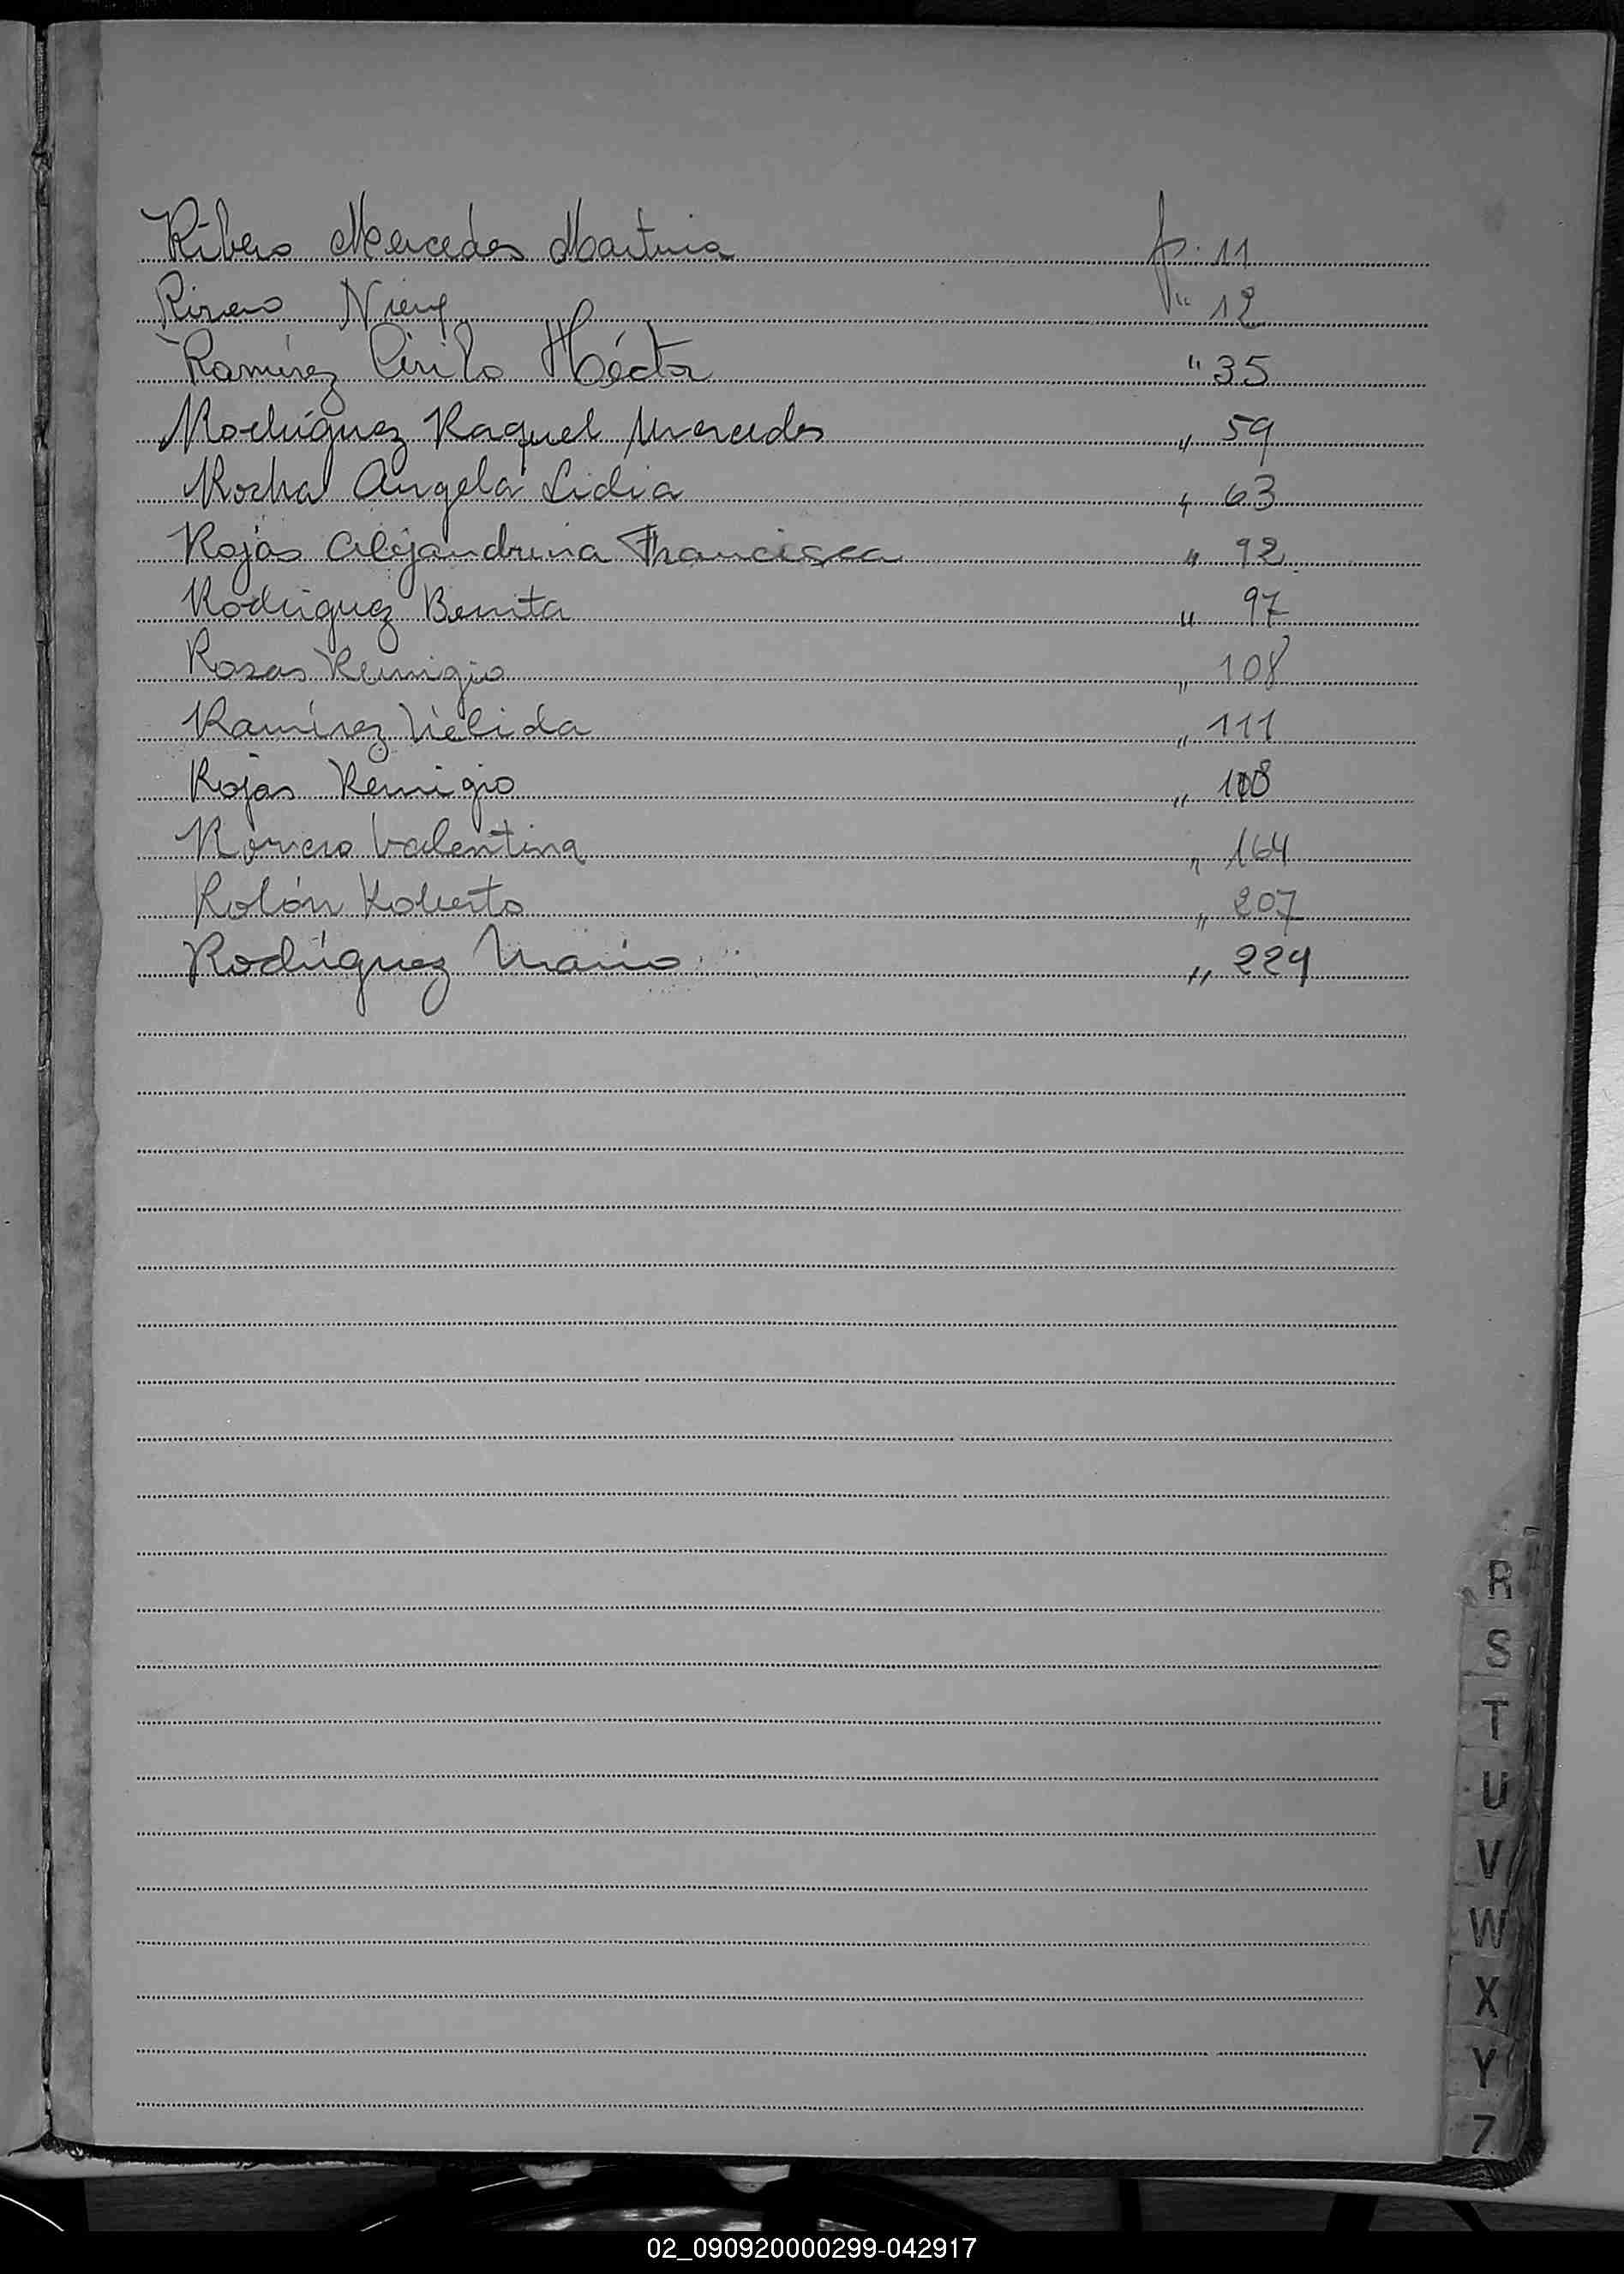 Ribero Mercedes Martina f. 11
Rivero Nieve " 12
Ramírez Cirilo Héctor " 35
Rodríguez Raquel Mercedes " 59
Rocha Angela Lidia " 63
Rojas Alejandrina Francisca " 92
Rodriguez Benita " 97
Rosas Remigio " 108
Ramírez Nélida " 111
Rojas Remigio " 108
Romero Valentina " 164
Rolón Roberto " 207
Rodríguez Mario " 229
R
S
T
U
V
W
X
Y
Z
02_090920000299-042917